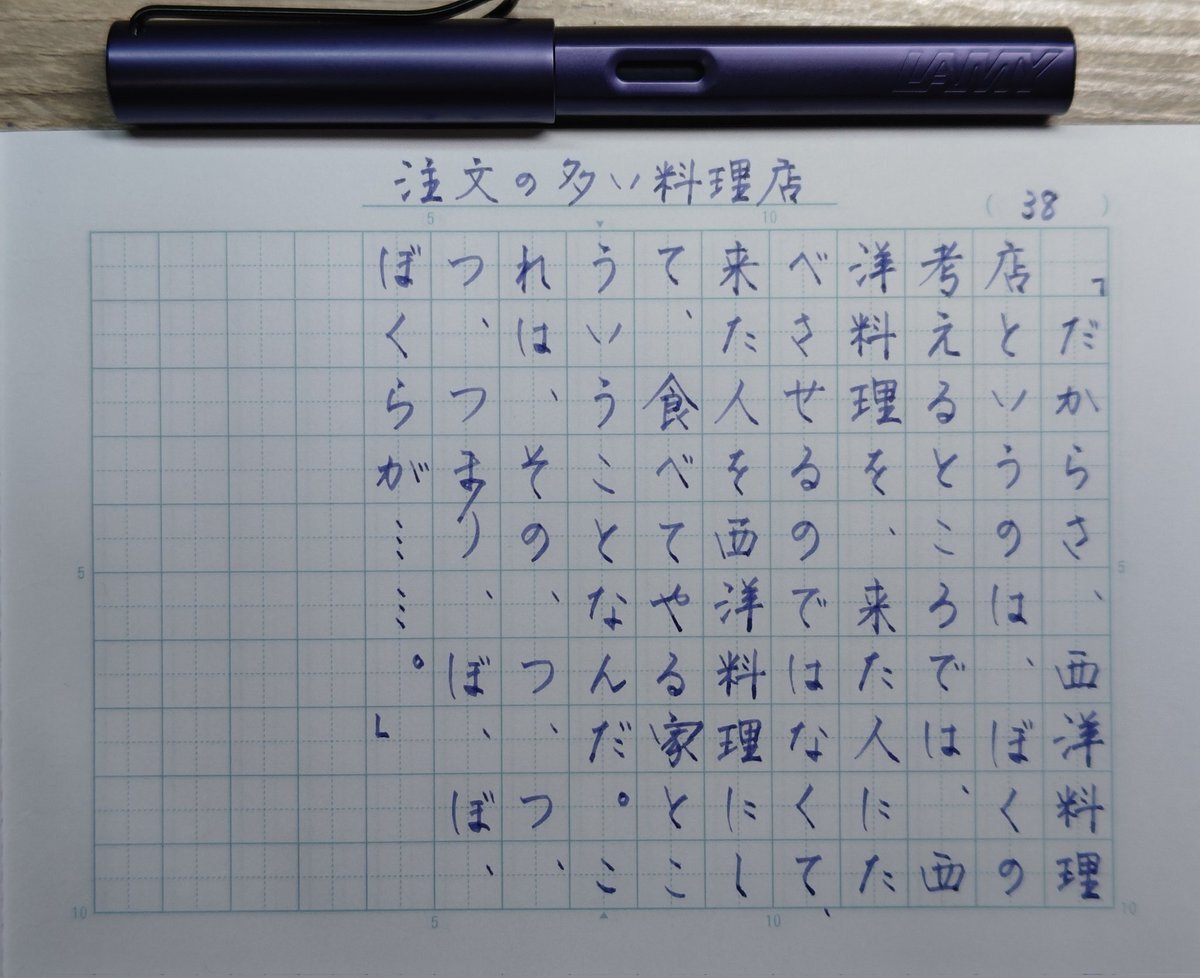 LAMY
注文の多い料理店
(38)
5 10
「だからさ、西洋料理
店というのは、ぼくの
考えるところでは、西
洋料理を、来た人にた
べさせるのではなくて、
来た人を西洋料理にし
て、食べてやる家とこ
ういうことなんだ。こ
れは、その、つ、つ、
つ、つまり、ぼ、ぼ、
ぼくらが……。」
5
5
10
10
5 10